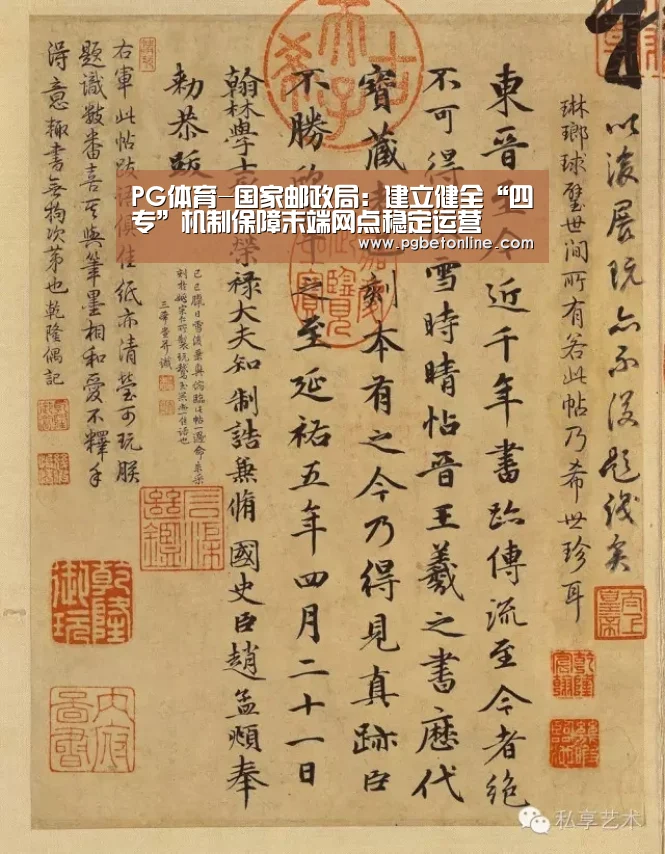 以後展玩亦不復題識矣
琳瑯球璧世間所有若此帖乃希世珍耳
東晉至今近千年書跡傳流至今者絕
不可得雪時晴帖晉王羲之書歷代
寶藏刻本有之今乃得見真跡臣
不勝之至延祐五年四月二十一日
翰林學士榮祿大夫知制誥兼脩國史臣趙孟頫奉
勅恭跋
右軍此帖跋語俱佳紙亦清瑩可玩朕
題識數番喜其與筆墨相和愛不釋手
得意輒書無拘次第也乾隆偶記
PG体育—国家邮政局：建立健全“四
专”机制保障末端网点稳定运营
www.pgbetonline.com
太上皇帝
乾隆宸翰
乾隆御玩
内府圖書
私享艺术